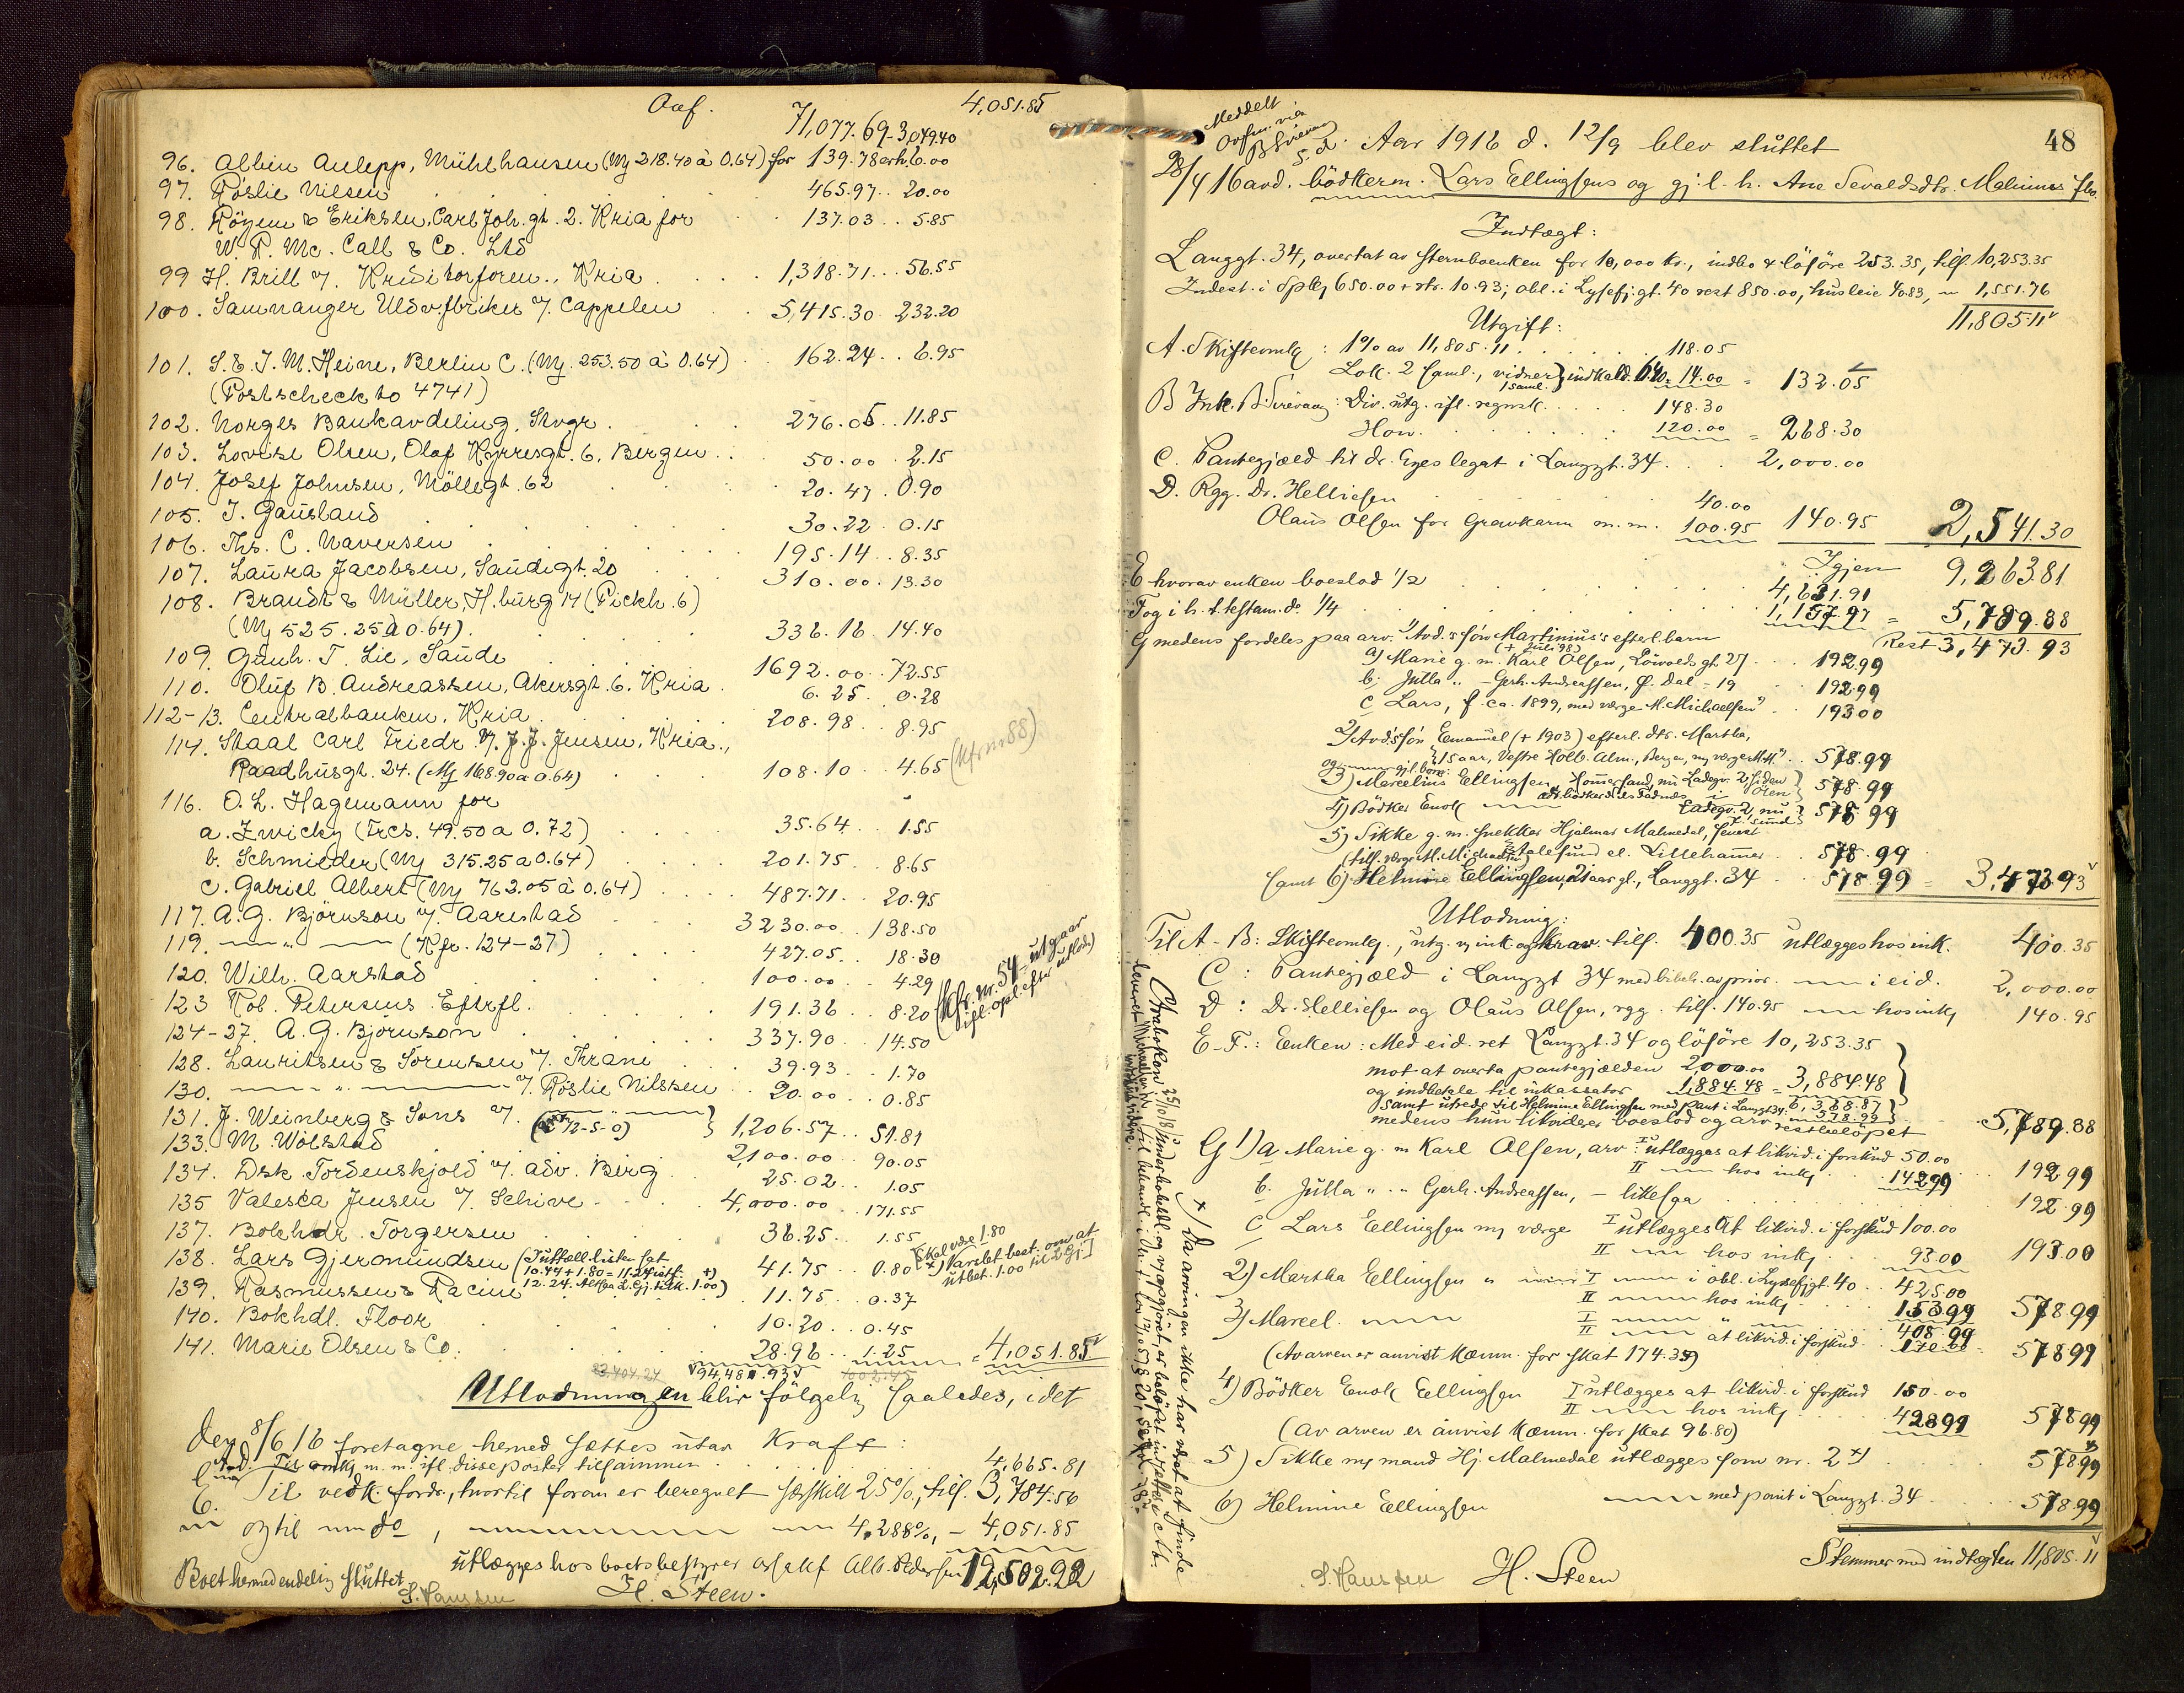 Ovf. 71,077.69 - 3,079.40 4,051.85
96. Albin Aulepp, Mühlhausen (Mg 218.40 à 0.64) for 139.78 erh. 6.00
97. Röslie Nilsen 465.97 20.00
98. Röyem & Eriksen, Carl Joh. gt. 2. Kria for 137.03 5.85
W. R. Mc. Call & Co. Ltd
99 H. Brill v/. Kreditorforen., Kria 1,318.71 56.55
100. Samnanger Uldv.fbriker v/. Cappelen 5,415.30 232.20
101. S. & J. M. Heine, Berlin C. (Mg. 253.50 à 0.64) 162.24 6.95
(Postscheckto 4741)
102. Norges Bankavdeling, Stvgr. 276.05 11.85
103. Lovise Olsen, Olaf Kyrresgt. 6. Bergen 50.00 2.15
104. Josef Johnsen, Möllegt. 62 20.47 0.90
105. J. Gausland 30.22 0.15
106. Ths. C. Naversen 195.14 8.35
107. Laura Jacobsen, Saudigt. 20 310.00 13.30
108. Brandt & Müller, H.burg 14 (Pickh. 6)
(Mg 525.25 à 0.64) 336.16 14.40
109. Gunh. T. Lie, Saude 1692.00 72.55
110. Oluf B. Andreassen, Akersgt. 6. Kria 6.25 0.28
112-13. Centralbanken, Kria 208.98 8.95
114. Staal Carl Friedr v/. J. J. Jensen, Kria.,
Raadhusgt. 24. (Mg 168.90 a 0.64) 108.10 4.65 (Kfr nr 88)
116. O. L. Hagemann for
a. Zwicky (Frcs. 49.50 a 0.72) 35.64 1.55
b. Schmieder (Mg 315.25 a 0.64) 201.75 8.65
c. Gabriel Albert (Mg 762.05 à 0.64) 487.71 20.95
117. A. G. Björnson v/. Aarstad 3230.00 138.50
119. — " — (Kfr. 124-27) 427.05 18.30
120. Wilh. Aarstad 100.00 4.29
123 Rob. Petersens Eftrfl. 191.36 8.20 (Kfr. Nr. 54 utgaar ifl. opl. efter utlodn)
124-27. A. G. Björnson 337.90 14.50
128. Lauritsen & Sorensen v/. Thrane 39.93 1.70
130. — " — v/. Röslie Nilssen 20.00 0.85
131. J. Weinberg & Sons v/. — " — 1,206.57 51.81
133. M. Wölstad 2,100.00 90.05
134. Dsk. Tordenskjold v/. adv. Berg 25.02 1.05
135 Valesca Jensen v/. Schive 4,000.00 171.55
137. Bokhdr. Torgersen 36.25 1.55
138. Lars Gjermundsen 41.75 0.80 [Skal være 1.80
139. Rasmussen & Racine 11.75 0.37
140. Bokhdl. Floor 10.20 0.45
141. Marie Olsen & Co. 28.96 1.25 = 4,051.85
Utlodningen blir fölgelig saaledes, idet
den 8/6 16 foretagne herved sættes utav Kraft:
m. m. ifl. disse poster tilsammen 4,665.81
E. Til vedk. fordr., hvortil foran er beregnet særskilt 25%, tils. 3,784.56
og til — do, — 4,288%, - 4,051.85
utlægges hos boets bestyrer 12,502.22
Boet hermed endelig sluttet
S. Hanssen H. Steen.
48
Meddelt
Aar 1916 d. 12/9 blev sluttet
28/4 16 avd. bödkerm. Lars Ellingsens og gj. l. h. Ane Sevaldsdtr. Malmins
Indtægt:
Langgt. 34, overtat av Stervboenken for 10,000 kr., indbo & lösöre 253.35, tils. 10,253.35
Indest. i Spbk 650.00 + rtr. 10.93; obl. i Lysefj.gt. 40 rest 850.00, husleie 40.83, — 1,551.76
11,805.11
Utgift:
A. Skifteomkg: 1% av 11,805.11 118.05
Lok. 2 saml., vidner 1 saml. indkald. = 14.00 = 132.05
B Ink. B. Sirevaag: Div. utg. ifl. regnsk. 148.30
Hon. 120.00 = 268.30
C. Pantegjæld til dr. Eyes legat i Langgt. 34. 2,000.00
D. Rgg. Dr. Helliesen 40.00
Olaus Olsen for Gravkarm m.m. 100.95 140.95 2,541.30
Igjen 9,263.81
E hvorav enken boeslod 1/2 4,631.91
F og i h. t. testam. do 1/4 1,157.97 = 5,789.88
Rest 3,473.93
G medens fordeles paa arv. 1) Avd.s sön Martinius's efterl. barn
(+ Juli 98)
a) Marie g. m. Karl Olsen, Lövoldsgt. 27 192.99
b. Jutta " - Gerh. Andreassen, 19 192.99
c Lars, f. ca. 1899, med værge M. Michaelsen 193.00
2) Avd.s sön Emanuel (+ 1903) efterl. dtr. Martha,
15 aar, Vestre Holb. Alm., Bergen, 578.99
3) Marcelius Ellingsen, 578.99
4) Bödker Enok — Ladegv. 2, nu 578.99
5) Sikke g. m. snekker Hjalmar Malmedal, senest
Aalesund el. Lillehamer 578.99
samt 6) Helmine Ellingsen, 21 aar gl., Langgt. 34 578.99 = 3,473.93
Utlodning:
Til A - B: Skifteomkg., utg. v/ ink og krav. tils. 400.35 utlægges hos ink. 400.35
C: Pantegjæld i Langgt 34 med bibeh. av prior. — i eid. 2,000.00
D: Dr. Helliesen og Olaus Olsen, rgg. tils. 140.95 — hos inkg 140.95
E-F.: Enken: Med eid. ret Langgt. 34 og lösöre 10,253.35
mot at overta pantegjælden 2,000.00
og indbetale til inkassator 1,884.48 = 3,884.48
samt utrede til Helmine Ellingsen med pant i Langgt 34. 6,368.87
578.99
medens hun likviderer boeslod og arv restbelöpet 5,789.88
G 1) a Marie g. m Karl Olsen, arv: I utlægges at likvid. i forskud 50.00
II — hos inkg 142.99 192.99
b. Jutta " " Gerh. Andreassen, - likesaa 192.99
c Lars Ellingsen v/ værge I utlægges at likvid. i forskud 100.00
II — hos inkg 93.00 193.00
2) Martha Ellingsen " — I — i obl. i Lysefjgt. 40 425.00
II — hos inkg 153.99 578.99
3) Marcel. — I — " — 408.99
II — at likvid. i forskud 170.00 578.99
(Av arven er anvist Kæmn. for skat 174.35)
4) Bödker Enok Ellingsen I utlægges at likvid. i forskud 150.00
II — hos inkg 428.99 578.99
(Av arven er anvist Kæmn. for skat 96.80)
5) Sikke v/ mand Hj. Malmedal utlægges som nr. 2 x) 578.99
6) Helmine Ellingsen — med pant i Langgt. 34 578.99
Stemmer med indtægten 11,805.11
S. Hanssen H. Steen
x) Da arvingen ikke har været at finde